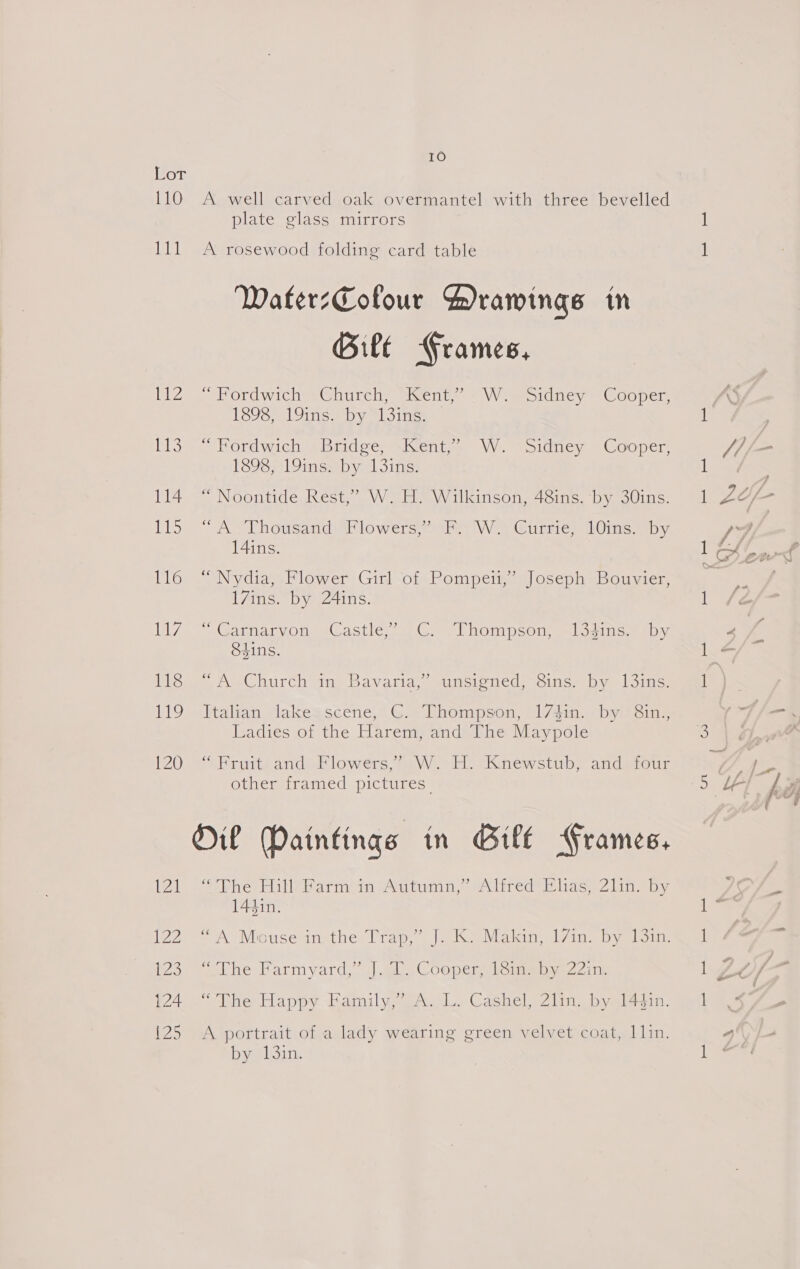 10
LOT
110 A well carved oak overmantel with three bevelled
plate glass mirrors 1
111 A rosewood folding card table 1
Water-Colour Drawings in
Gilt Frames.
112 “Fordwich Church, Kent,” W. Sidney Cooper,
1898, 19ins. by 13ins. 1
113 “Fordwich Bridge, Kent,” W. Sidney Cooper,
1898, 19ins. by 13ins. 1
114 “Noontide Rest,” W. H. Wilkinson, 48ins. by 30ins. 1
115 “A Thousand Flowers,” F. W. Currie, 10ins. by
14ins. 1
116 “Nydia, Flower Girl of Pompeii,” Joseph Bouvier,
17ins. by 24ins. 1
117 “Carnarvon Castle,” C. Thompson, 13½ins. by
8½ins. 1
118 “A Church in Bavaria,” unsigned, 8ins. by 13ins. 1
119 Italian lake scene, C. Thompson, 17½in. by 8in.,
Ladies of the Harem, and The Maypole 3
120 “Fruit and Flowers,” W. H. Knewstub, and four
other framed pictures 5
Oil Paintings in Gilt Frames.
121 “The Hill Farm in Autumn,” Alfred Elias, 21in. by
14½in. 1
122 “A Mouse in the Trap,” J. K. Makin, 17in. by 13in. 1
123 “The Farmyard,” J. T. Cooper, 18in. by 22in. 1
124 “The Happy Family,” A. L. Cashel, 21in. by 14½in. 1
125 A portrait of a lady wearing green velvet coat, 11in.
by 13in. 1